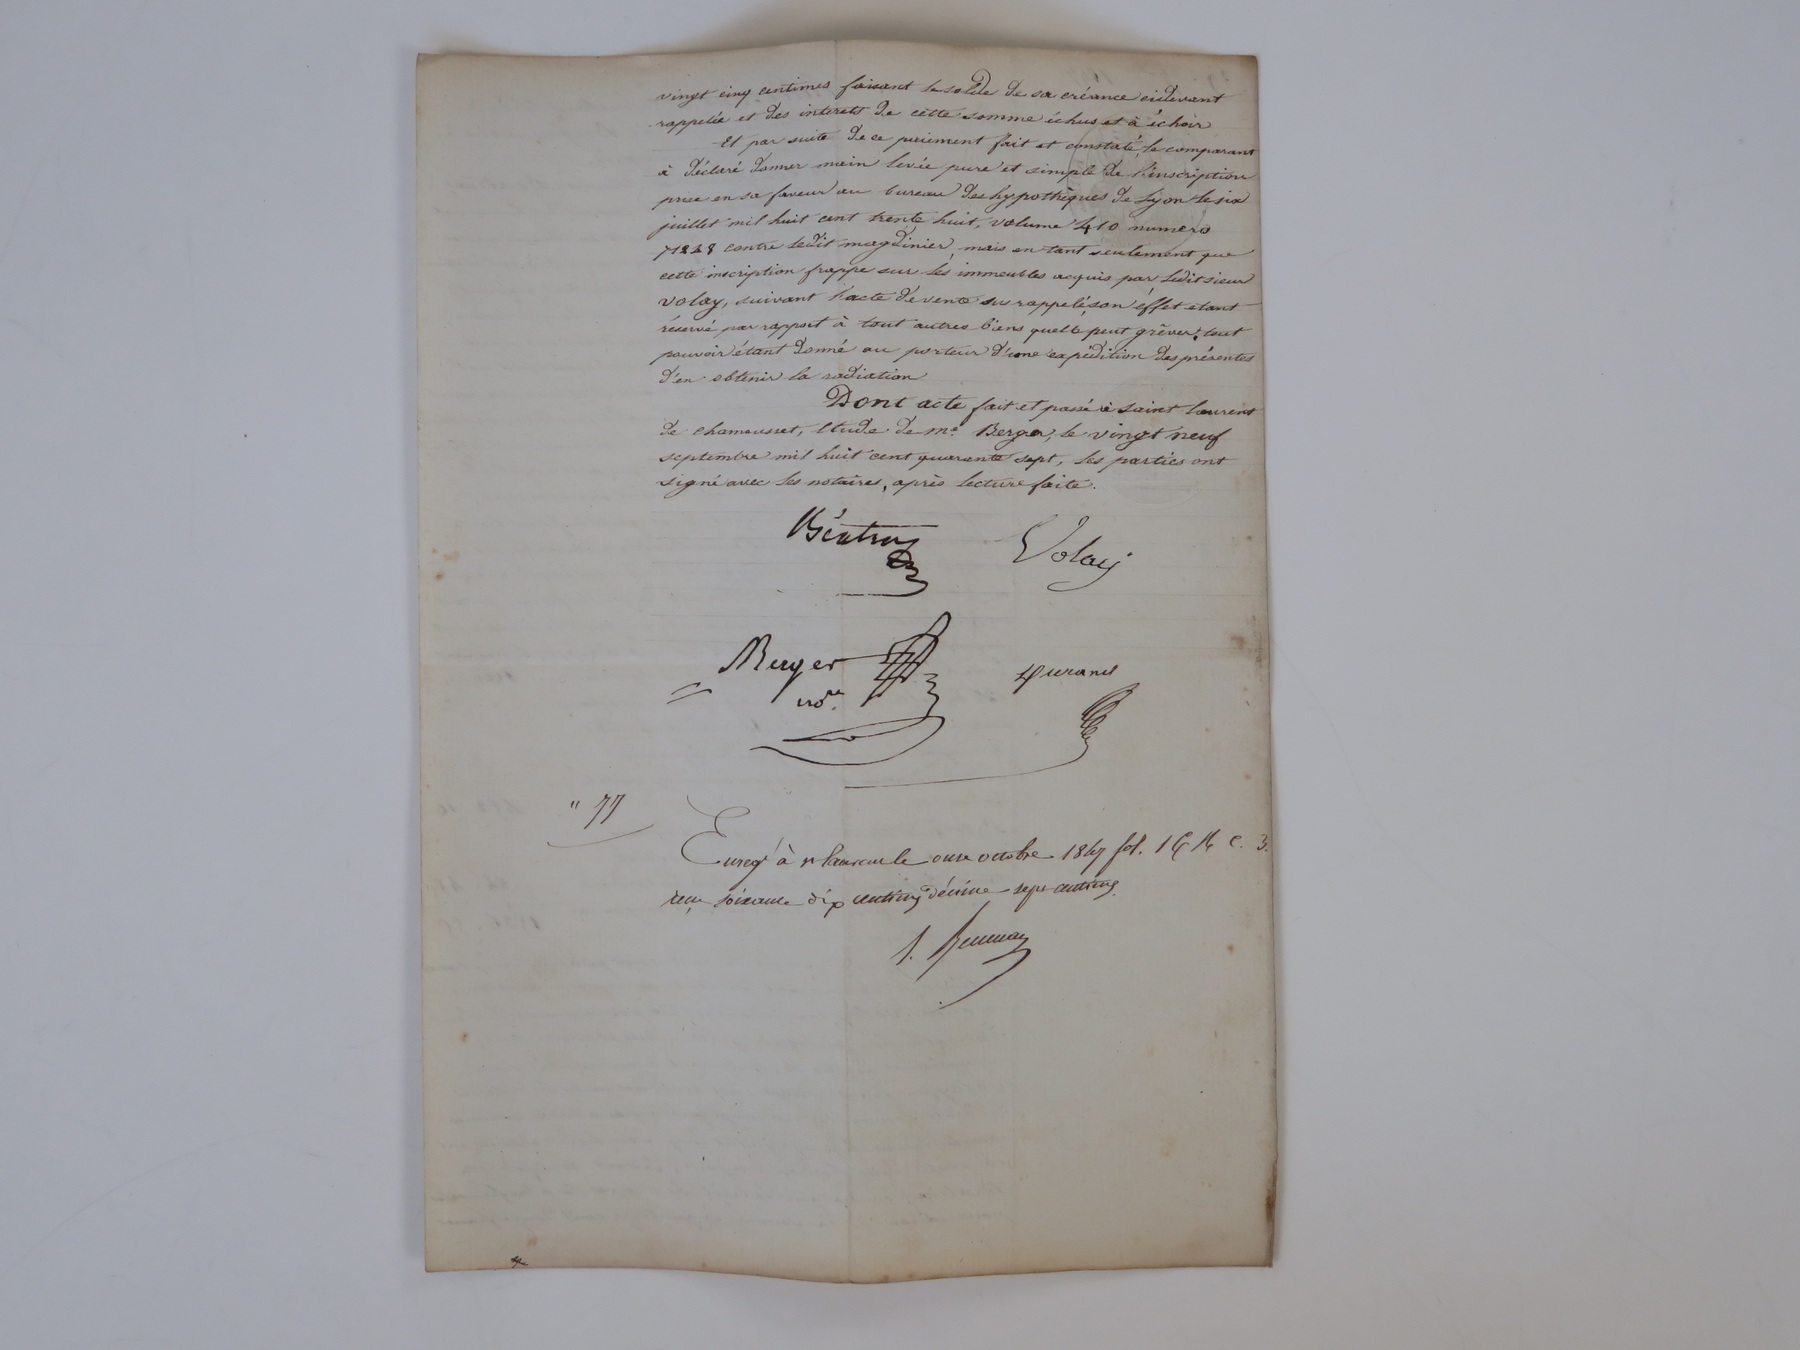 vingt cinq centimes faisant le solde de sa créance cidevant
rappelée et des interets de cette somme échus et à échoir
Et par suite de ce paiement fait et constaté, le comparant
à déclaré donner main levée pure et simple de l'inscription
prise en sa faveur au bureau des hypothèques de Lyon le six
juillet mil huit cent trente huit, volume 410 numero
contre ledit magdinier, mais en tant seulement que
cette inscription frappe sur les immeubles acquis par ledit sieur
Volay, suivant l'acte de vente sus rappelé, son éffet etant
réservé par rapport à tout autres biens quelle peut grêver, tout
pouvoir étant donné au porteur d'une expédition des présentes
d'en obtenir la radiation
Dont acte fait et passé à saint laurent
de chamousset, étude de me Berger, le vingt neuf
septembre mil huit cent quarante sept, les parties ont
signé avec les notaires, après lecture faite.
Volay
Berger
nore
Durand
" 77
Enregé à st laurent le onze octobre 1847 fol. c. 3.
reçu soixante dix centimes décime sept centimes